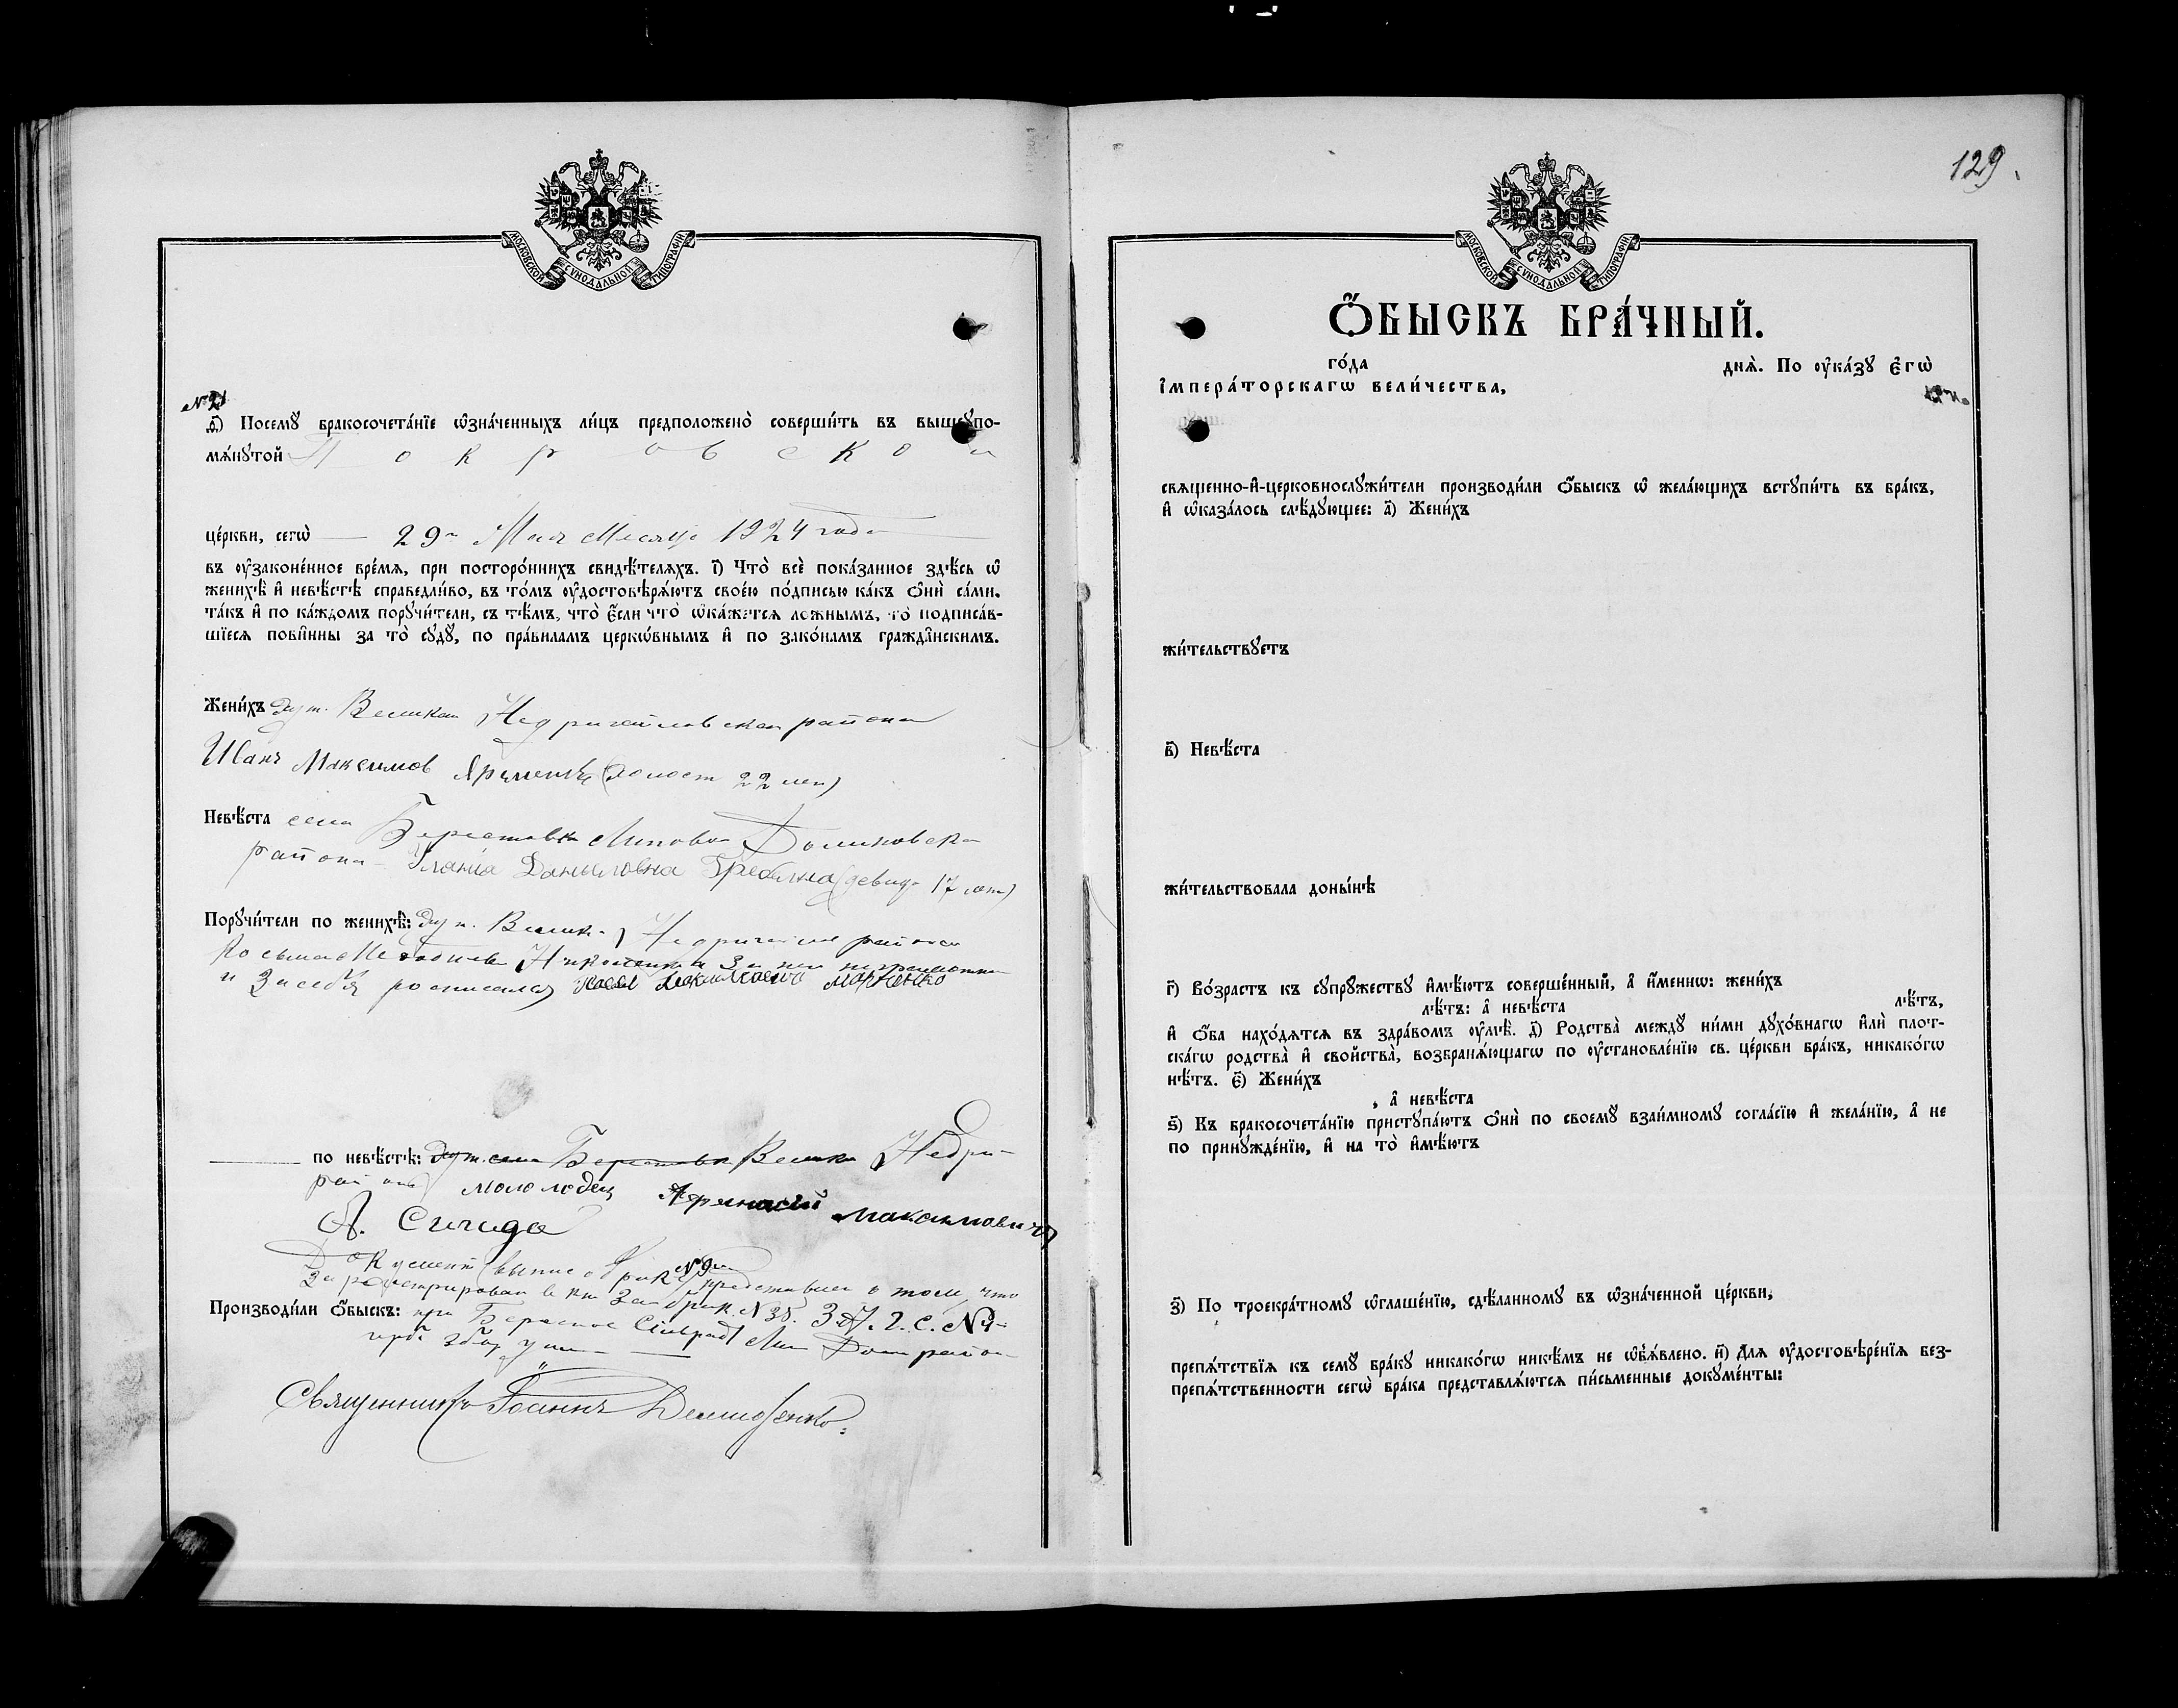 МОСКОВСКОЙ СѴНОДАЛЬНОЙ ТИПОГРАФІИ
№ 21
д҃і) Посемꙋ бракосочета́нїе ѡ҆зна́ченныхъ ли́цъ предположено̀ соверши́ть въ вышеꙋпо-
мѧ́нꙋтой Покровской
це́ркви, сегѡ̀ 29 Мая Месяца 1924 года
въ оу҆законе́нное вре́мѧ, при посторо́ннихъ свидѣ́телѧхъ. і҃) Что̀ всѐ пока́занное здѣ́сь ѡ҆
женихѣ̀ и҆ невѣ́стѣ справедли́во, въ то́мъ оу҆достовѣрѧ́ютъ свое́ю по́дписью ка́къ Ѻ҆нѝ са́ми.
та́къ и҆ по ка́ждомъ порꙋчи́тели, съ тѣ́мъ, что̀ є҆́сли что̀ ѡ҆ка́жетсѧ ло́жнымъ, то̀ подписа́в-
шїесѧ пови́нны за то̀ сꙋдꙋ̀, по пра́виламъ церкѡ́внымъ и҆ по зако́намъ гражда́нскимъ.
Жени́хъ хут. Великан Недригайловскаго района
Иванъ Максимов Яременко (холост 22 лет)
Невѣ́ста села Берестовка Липово Долиновска
района Уланіа Даныловна Гребляна (девица 17 лет)
Порꙋчи́тели по женихѣ̀: хут. Велик. Недригайлов района
Косьма Никоненко а за них неграмотных
и за себя росписался
по невѣ́стѣ: хут. села Берестовка Велика Недри-
района Афанасий Максимович
А. Сигида
Документ выпис о брак № 9 представлен о том, что
Зарегестрирован в кн Зап брак № 38. З.А.Г.С. №
Производи́ли Ѻ҆́быскъ: при Берестов Сільрад Лип Дол район
Священникъ Іоаннъ
129.
МОСКОВСКОЙ СѴНОДАЛЬНОЙ ТИПОГРАФІИ
Ѻ҆́БЫСКЪ БРА́ЧНЫЙ.
го́да днѧ̀. По оу҆ка́зꙋ є҆гѡ̀
і҆мпера́торскагѡ вели́чества,
свѧщенно-и҆-церковнослꙋжи́тели производи́ли Ѻ҆́быскъ ѡ҆ жела́ющихъ встꙋпи́ть въ бра́къ,
и҆ ѡ҆каза́лось слѣ́дꙋющее: а҃) Жени́хъ
жи́тельствꙋетъ
в҃) Невѣ́ста
жи́тельствовала доны́нѣ
г҃) Во́зрастъ къ сꙋпрꙋ́жествꙋ и҆мѣ́ютъ соверше́нный, а҆ и҆́меннѡ: жени́хъ
лѣ́тъ: а҆ невѣ́ста лѣ́тъ,
и҆ Ѻ҆́ба нахо́дѧтсѧ въ здра́вомъ оу҆мѣ̀. д҃) Родства̀ междꙋ̀ ни́ми дꙋхо́внагѡ и҆лѝ плот-
ска́гѡ родства̀ и҆ свойства̀, возбранѧ́ющагѡ по оу҆становле́нїю св. це́ркви бра́къ, никако́гѡ
нѣ́тъ. є҃) Жени́хъ
, а҆ невѣ́ста
ѕ҃) Къ бракосочета́нїю пристꙋпа́ютъ Ѻ҆нѝ по своемꙋ̀ взаи́мномꙋ согла́сїю и҆ жела́нїю, а҆ не
по принꙋжде́нїю, и҆ на то̀ и҆мѣ́ютъ
з҃) По троекра́тномꙋ ѡ҆глаше́нїю, сдѣ́ланномꙋ въ ѡ҆зна́ченной це́ркви,
препѧ́тствїѧ къ семꙋ̀ бра́кꙋ никако́гѡ никѣ́мъ не ѡ҆б̾ѧ́влено. и҃) Длѧ оу҆достовѣре́нїѧ без-
препѧ́тственности сегѡ̀ бра́ка представлѧ́ютсѧ пи́сьменные докꙋме́нты: